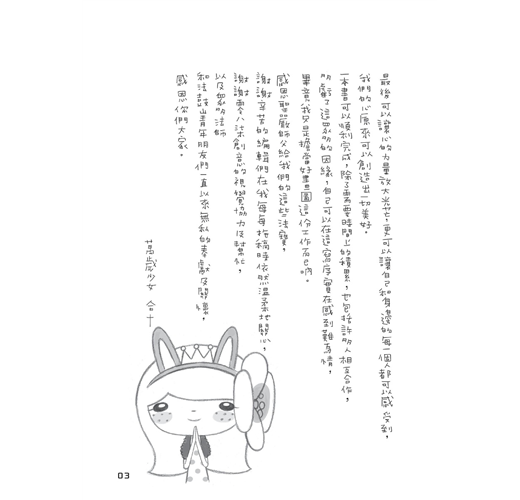 最後可以讓心的力量放大光芒，更可以讓自己和身邊的每一個人都可以感受到，
我們的心原來可以創造出一切美好。
一本書可以順利完成，除了需要時間上的積累，也包括許多人相互合作，
所虧了這眾多的因緣，自己可以在這寫序實在感到難為情，
畢竟我只是擔當好畫圖這份工作而已啊。
感恩聖嚴師父給我們的這些法寶，
謝謝辛苦的編輯們在我每每拖稿時依然溫柔地關心，
謝謝零八柒創意的視覺協力佳對葉比，
以及眾多法師
和法鼓山青年朋友們一直以來無私的奉獻及關繫，
感恩你們大家。
萬歲少女 合十
03